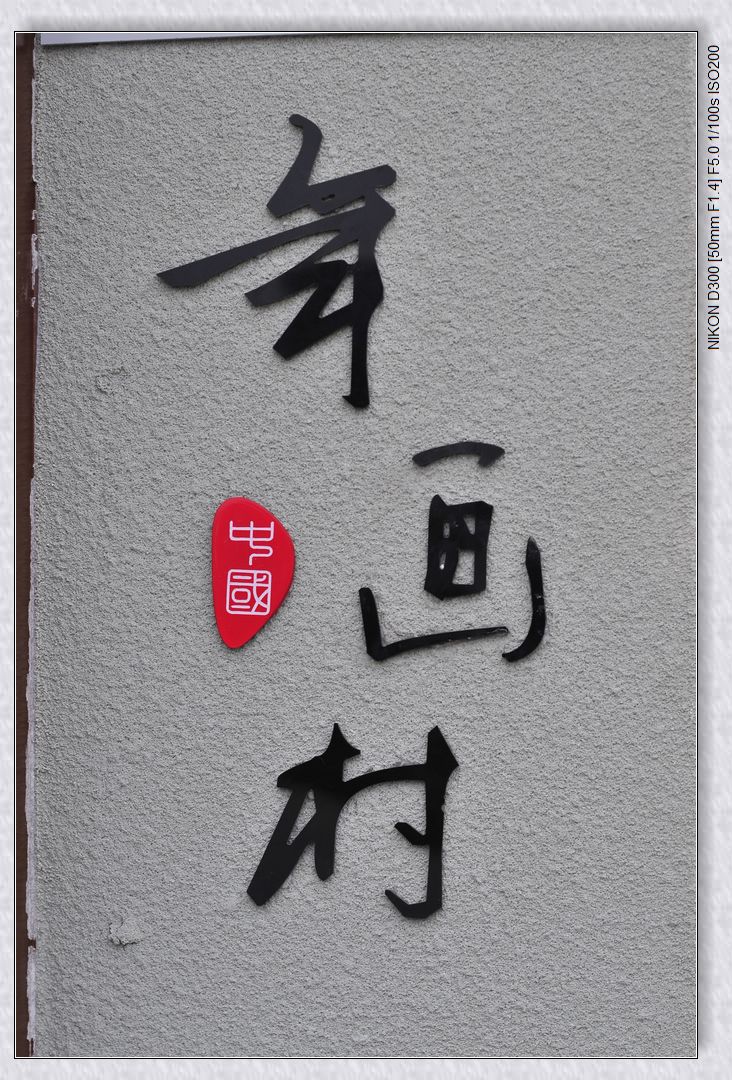 年画村
中國
NIKON D300 [50mm F1.4] F5.0 1/100s ISO200